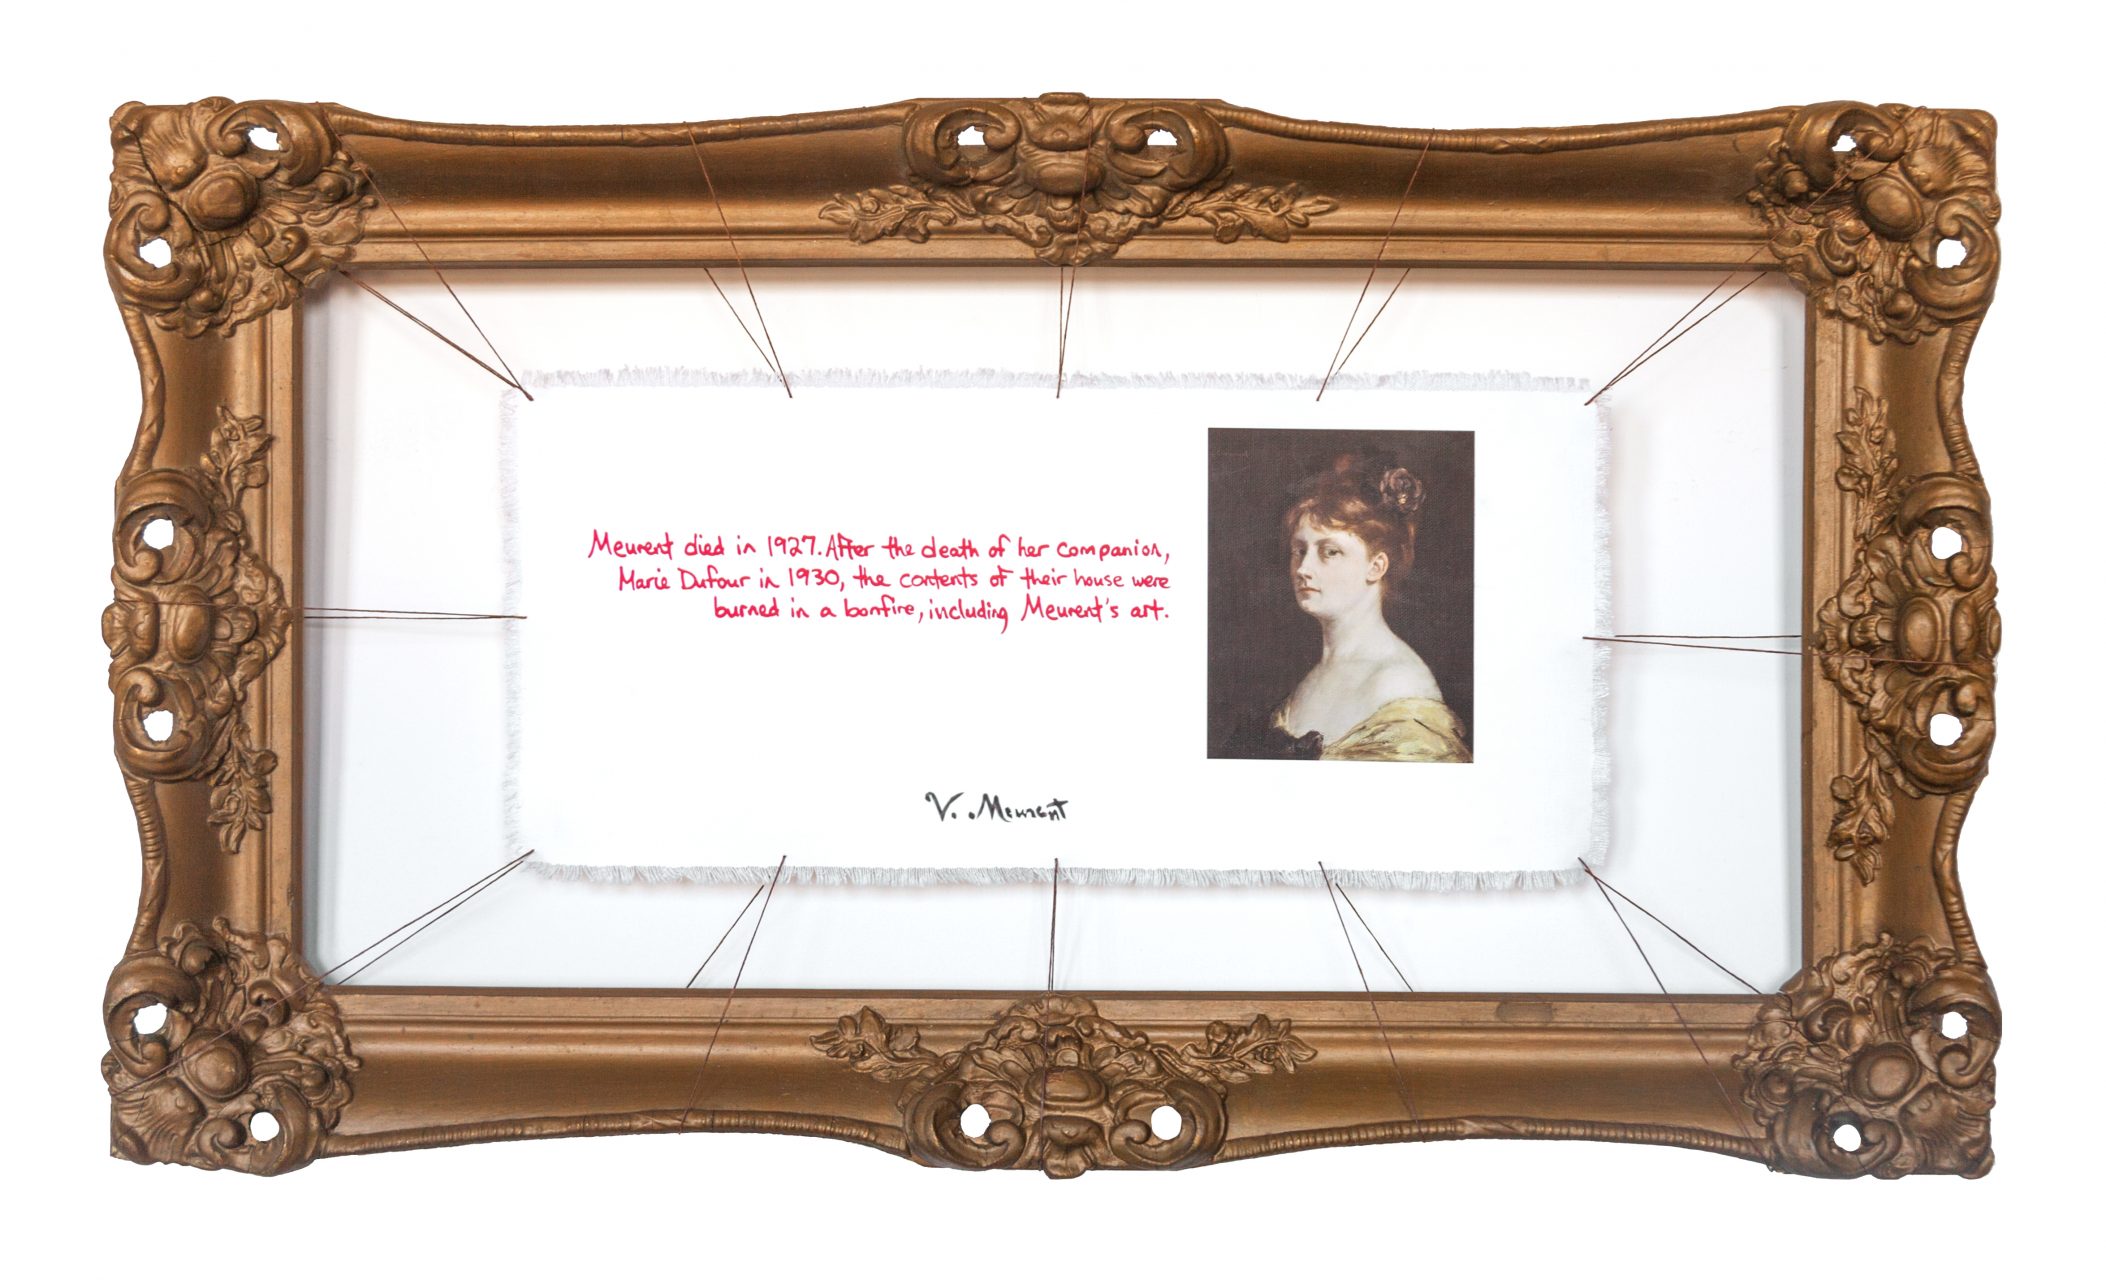 Meurent died in 1927. After the death of her companion,
Marie Dufour in 1930, the contents of their house were
burned in a bonfire, including Meurent's art.
V. Meurent